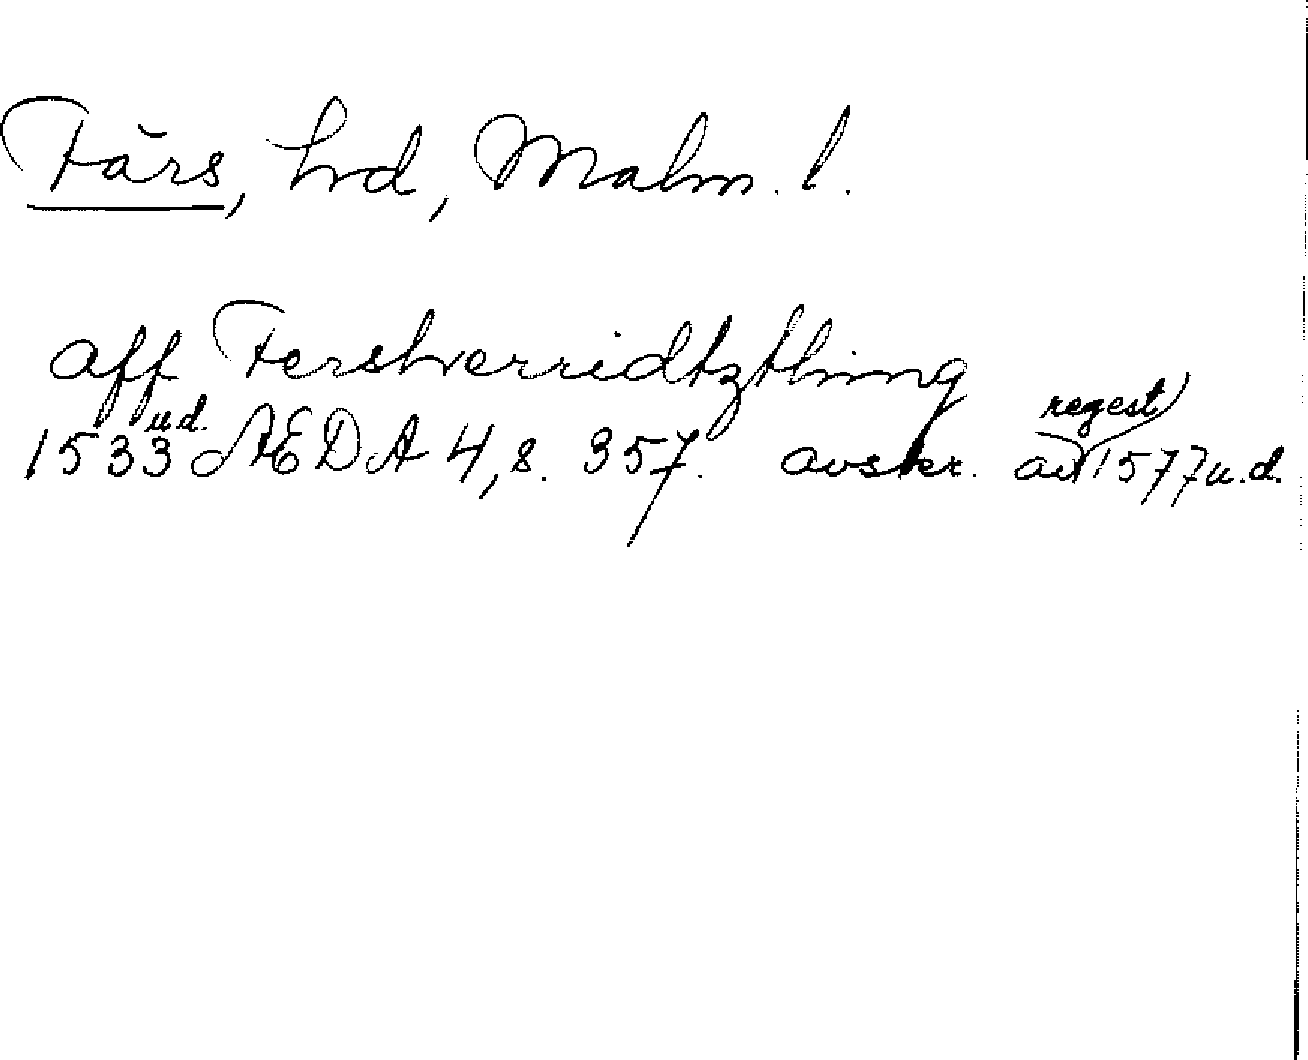 Färs, hrd, Malm. l.
aff Fersherridtzthing
1533 u.d. ÆDA 4, s. 357. avskr. av regest 1577 u.d.